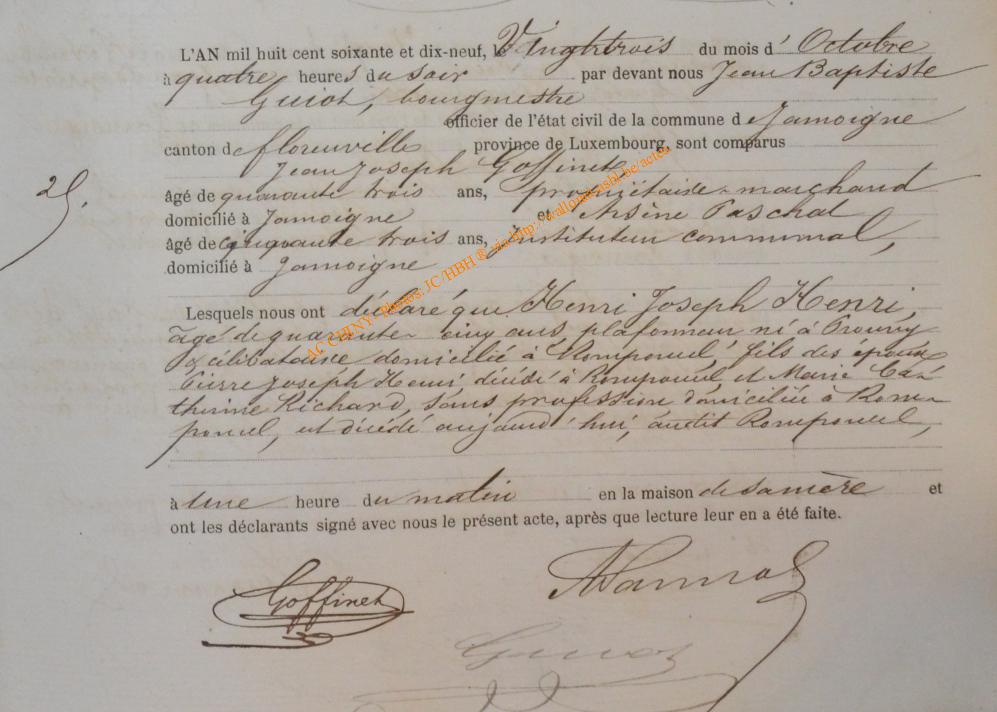 L'AN mil huit cent soixante et dix-neuf, le Vingt trois du mois d'Octobre
à quatre heures du soir par devant nous Jean Baptiste
Guiot, bourgmestre
officier de l'état civil de la commune de Jamoigne
canton de florenville province de Luxembourg, sont comparus
Jean Joseph Goffinet
âgé de quarante trois ans, propriétaire-marchand
domicilié à Jamoigne et Arsène Paschal
âgé de cinquante trois ans, instituteur communal,
domicilié à Jamoigne
25.
Lesquels nous ont déclaré que Henri Joseph Henri,
âgé de quarante cinq ans plafonneur né à Prouvy
célibataire domicilié à Romponcel, fils des époux
Pierre Joseph Henri décédé à Romponcel et Marie Ca-
therine Richard, sans profession domiciliée à Rom-
poncel, est décédé aujourd'hui, audit Romponcel,
à une heure du matin en la maison de sa mère et
ont les déclarants signé avec nous le présent acte, après que lecture leur en a été faite.
Goffinet
Guiot
AC CHINY - Photos: JC/HBH ® via http://wallonia.asbl.be/actes